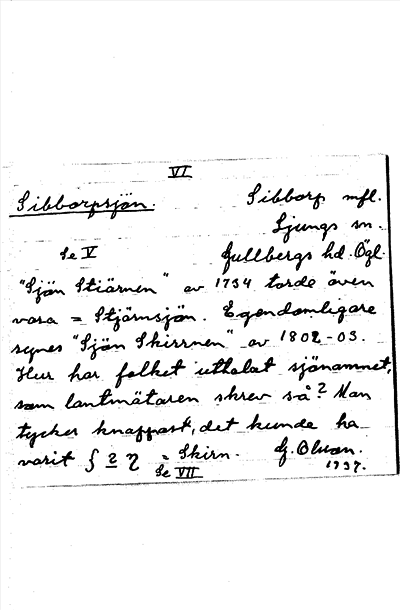 VI
Sibborpsjön. Sibborp mfl.
Ljungs sn.
Se V Gullbergs hd. Ögl.
"Sjön Stiärnen" av 1734 torde även
vara = Stjärnsjön. Egendomligare
synes "Sjön Skirrnen" av 1802-03.
Hur har folket uttalat sjönamnet,
som lantmätaren skrev så? Man
tycker knappast, det kunde ha
varit = Skirn.
1937.
Se VII